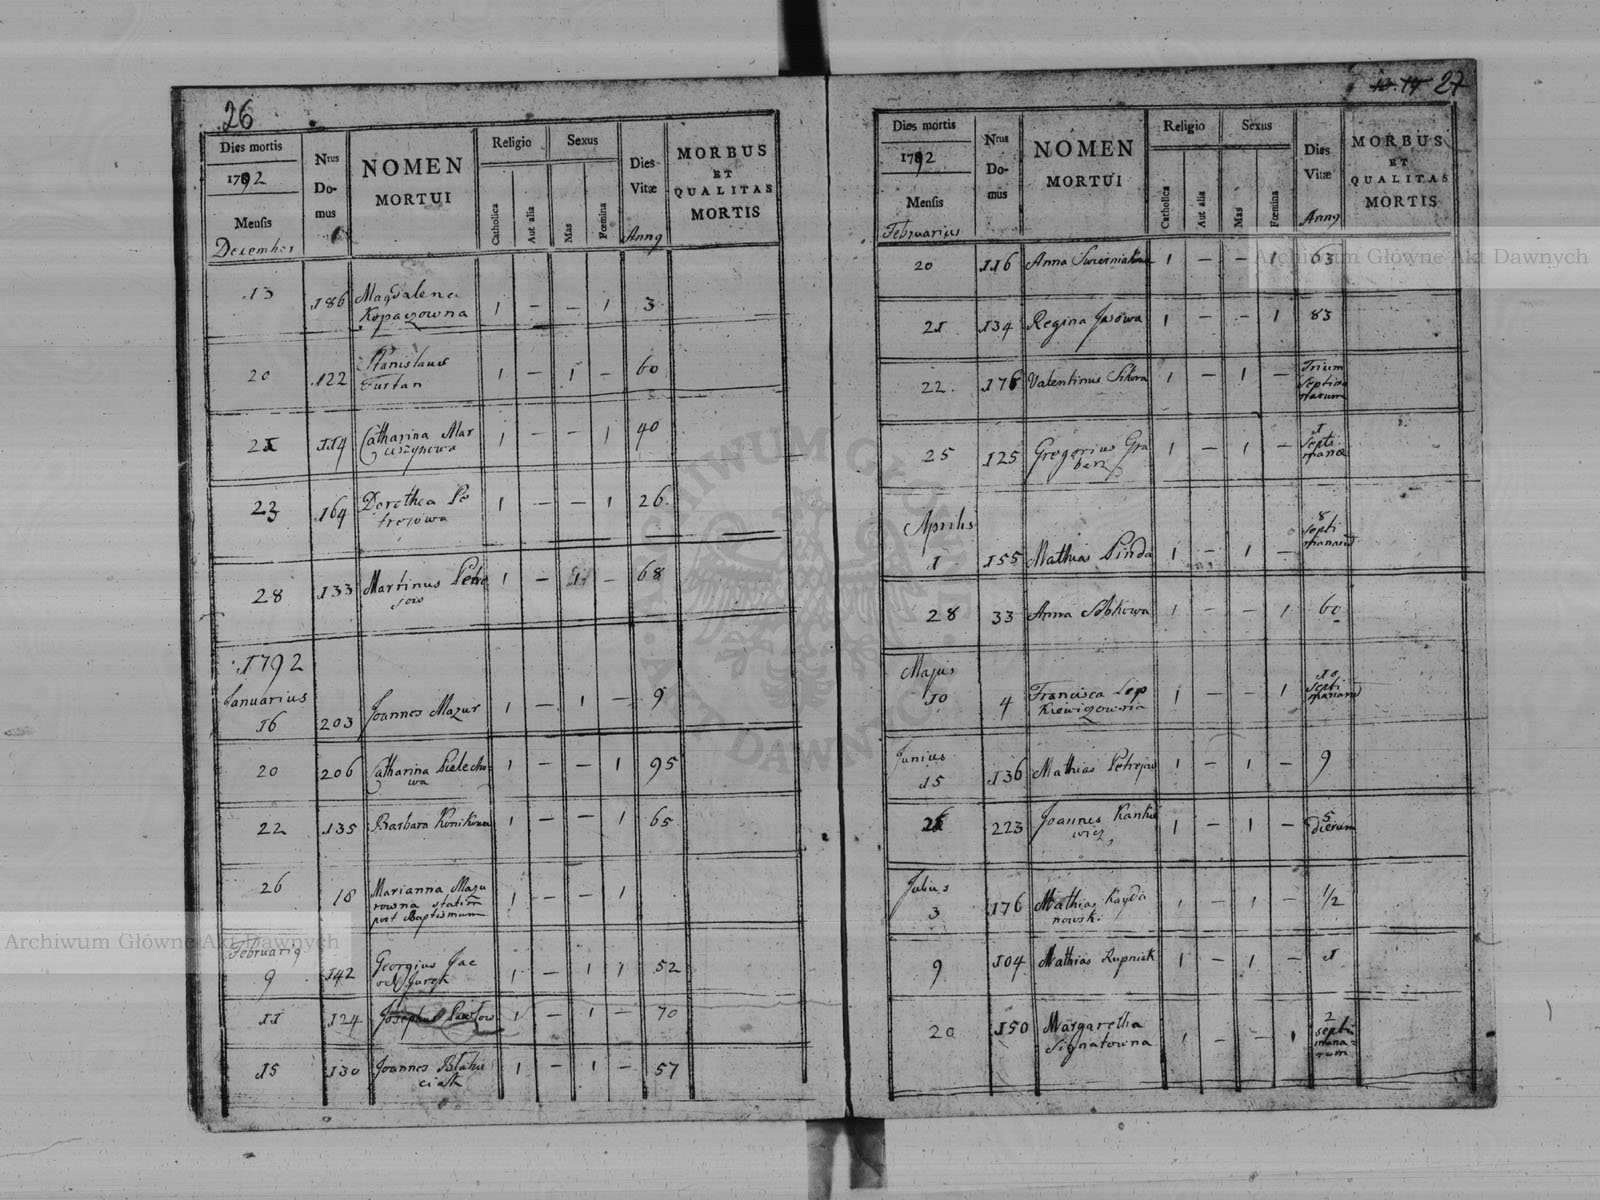 26
Dies mortis
1792
Mensis
December
Nrus
Do-
mus
NOMEN
MORTUI
Religio
Catholica
Aut alia
Sexus
Mas
Fœmina
Dies
Vitæ
Anny
MORBUS
ET
QUALITAS
MORTIS
13 186 Magdalena
Kopaczowna 1 – – 1 3
20 122 Stanislaus
Furtan 1 – 1 – 60
21 114 Catharina Mar
uszynowa 1 – – 1 40
23 164 Dorothea Pe
trejowa 1 – – 1 26
28 133 Martinus Petre
jow 1 – 1 – 68
1792
Januarius
16 203 Joannes Mazur 1 – 1 – 9
20 206 Catharina Pielecho-
wa 1 – – 1 95
22 135 Barbara Konikowa 1 – – 1 65
26 18 Marianna Mazu
rowna statim
post Baptismum 1 – – 1
Februarig
9 142 Georgius Jac
1 – 1 1 52
11 124 Josephus Pawlow 1 – 1 – 70
15 130 Joannes
ciak 1 – 1 – 57
27
Dies mortis
1792
Mensis
Februarius
Nrus
Do-
mus
NOMEN
MORTUI
Religio
Catholica
Aut alia
Sexus
Mas
Fœmina
Dies
Vitæ
Anny
MORBUS
ET
QUALITAS
MORTIS
20 116 Anna 1 – – 1 63
21 134 Regina Jasowa 1 – – 1 83
22 176 Valentinus Sikora 1 – 1 – Trium
septima
narum
25 125 Gregorius Gra
barz 1 – 1 – 1
septi
mana
Aprilis
1 155 Mathias Pinda 1 – 1 – 8
septi
manarum
28 33 Anna Sobkowa 1 – – 1 60
Majus
10 4 Francisca Lep
kiewiczowna 1 – – 1 10
septi
manarum
Junius
15 136 Mathias Petrejow 1 – 1 – 9
223 Joannes Kankie
wicz 1 – 1 – 5
dierum
Julius
3 176 Mathias Kayda
nowski 1 – 1 – 1/2
9 104 Mathias Kupniak 1 – 1 – 1
20 150 Margaretha
Signatowna 1 – – 1 2
septi
mana-
rum
Archiwum Główne Akt Dawnych
Archiwum Główne Akt Dawnych
ARCHIWUM GŁÓWNE AKT DAWNYCH